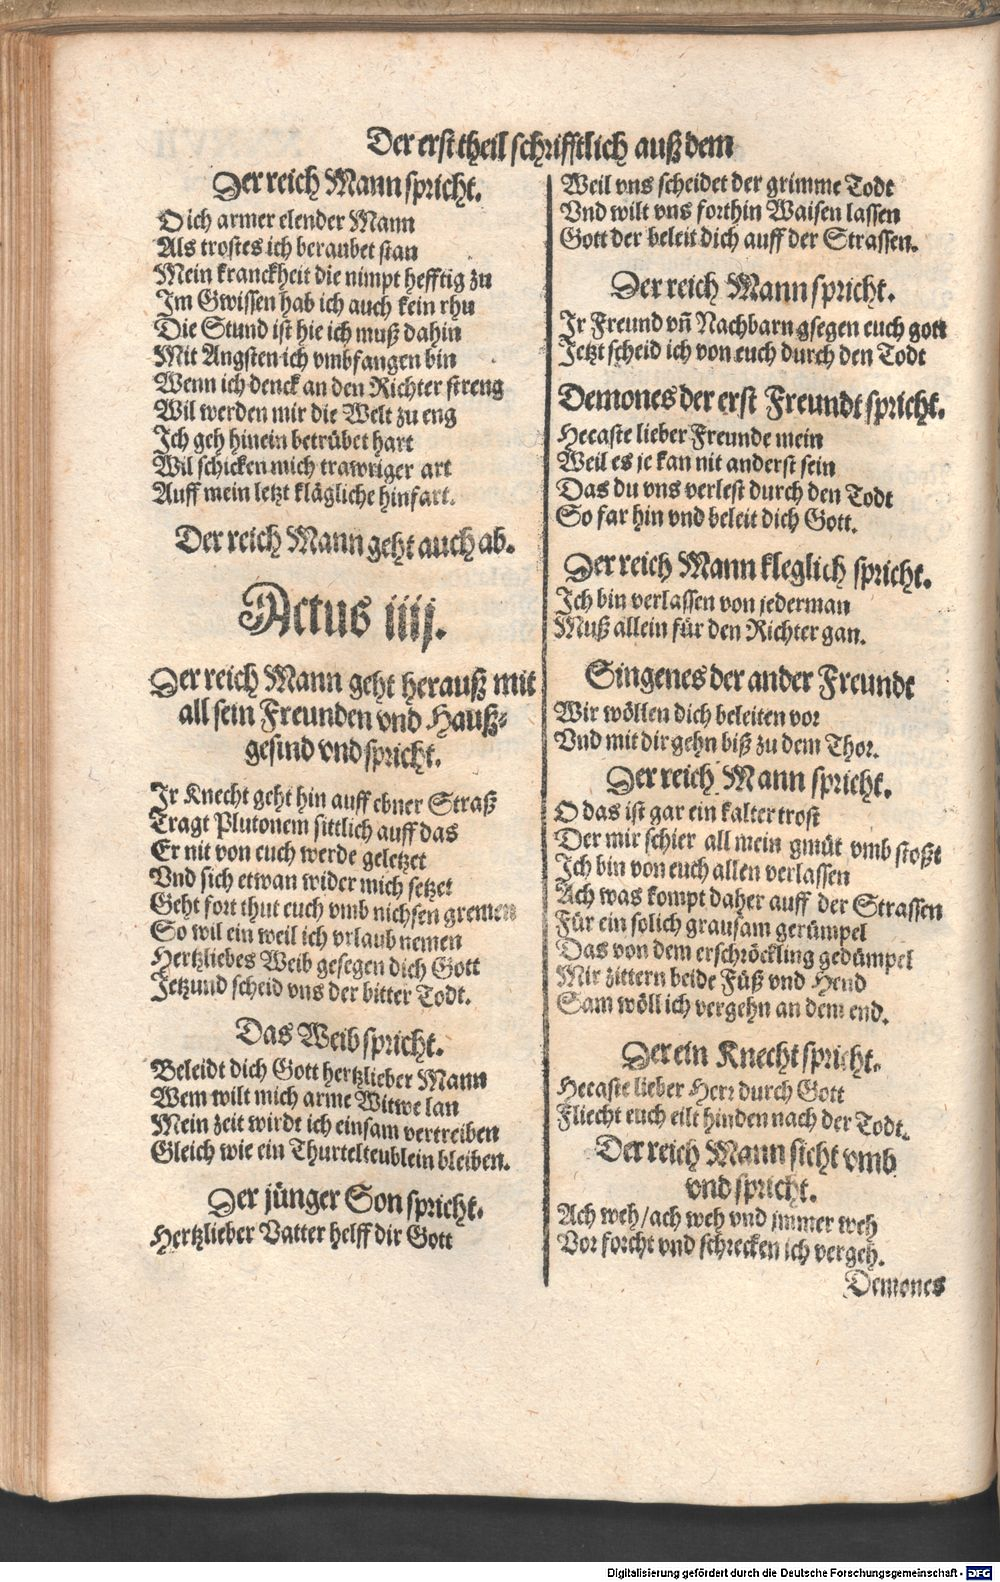 Der erst theil schrifftlich auß dem
Der reich Mann spricht.
O ich armer elender Mann
Als trostes ich beraubet stan
Mein kranckheit die nimpt hefftig zu
Im Gwissen hab ich auch kein rhu
Die Stund ist hie ich muß dahin
Mit Angsten ich vmbfangen bin
Wenn ich denck an den Richter streng
Wil werden mir die Welt zu eng
Ich geh hinein betrübet hart
Wil schicken mich trawriger art
Auff mein letzt klägliche hinfart.
Der reich Mann geht auch ab.
Actus iiij.
Der reich Mann geht herauß mit
all sein Freunden vnd Hauß-
gesind vnd spricht.
Jr Knecht geht hin auff ebner Straß
Tragt Plutonem sittlich auff das
Er nit von euch werde geletzet
Vnd sich etwan wider mich setzet
Geht fort thut euch vmb nichsen gremen
So wil ein weil ich vrlaub nemen
Hertzliebes Weib gesegen dich Gott
Jetzund scheid vns der bitter Todt.
Das Weib spricht.
Beleidt dich Gott hertzlieber Mann
Wem wilt mich arme Witwe lan
Mein zeit wirdt ich einsam vertreiben
Gleich wie ein Thurtelteublein bleiben.
Der jünger Son spricht.
Hertzlieber Vatter helff dir Gott
Weil vns scheidet der grimme Todt
Vnd wilt vns forthin Waisen lassen
Gott der beleit dich auff der Strassen.
Der reich Mann spricht.
Jr Freund vñ Nachbarn gsegen euch gott
Jetzt scheid ich von euch durch den Todt
Demones der erst Freundt spricht.
Hecaste lieber Freunde mein
Weil es je kan nit anderst sein
Das du vns verlest durch den Todt
So far hin vnd beleit dich Gott.
Der reich Mann kleglich spricht.
Ich bin verlassen von jederman
Muß allein für den Richter gan.
Singenes der ander Freundt
Wir wöllen dich beleiten vor
Vnd mit dir gehn biß zu dem Thor.
Der reich Mann spricht.
O das ist gar ein kalter trost
Der mir schier all mein gmüt vmb stoßt
Ich bin von euch allen verlassen
Ach was kompt daher auff der Strassen
Für ein solich grausam gerümpel
Das von dem erschröckling gedümpel
Mir zittern beide Füß vnd Hend
Sam wöll ich vergehn an dem end.
Der ein Knecht spricht.
Hecaste lieber Herr durch Gott
Fliecht euch eilt hinden nach der Todt.
Der reich Mann sicht vmb
vnd spricht.
Ach weh/ach weh vnd jmmer weh
Vor forcht vnd schrecken ich vergeh.
Demones
Digitalisierung gefördert durch die Deutsche Forschungsgemeinschaft - DFG